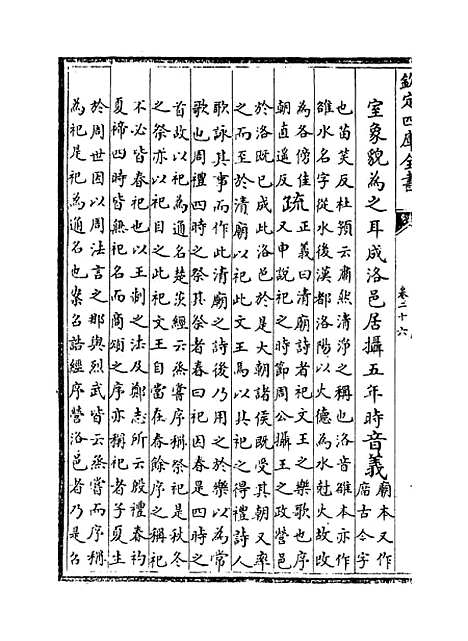 欽定四庫全書
卷二十六
室象貌為之耳成洛邑居攝五年時音義廟本又作庿古今字
也苗笑反杜預云肅然清淨之稱也洛音雒本亦作
雒水名字從水後漢都洛陽以火德為水尅火故改
為各傍隹朝直遥反疏正義曰清廟詩者祀文王之樂歌也序
又申說祀之時節周公攝王之政營邑
於洛既已成此洛邑於是大朝諸侯既受其朝又率
之而至於清廟以祀此文王焉以其祀之得禮詩人
歌詠其事而作此清廟之詩後乃用之於樂以為常
歌也周禮四時之祭其祭者春曰祠因春是四時之
首故以祀為通名楚茨經云烝嘗序稱祭祀是秋冬
之祭亦以祀目之此祀文王自當在春餘序之稱祀
不必皆春祀也以王制之法及鄭志所云殷禮春礿
夏禘四時皆無祀名而商頌之序亦稱祀者子夏生
於周世因以周法言之那與烈武皆云烝嘗而序稱
為祀是祀為通名也案召誥經序營洛邑者乃是召